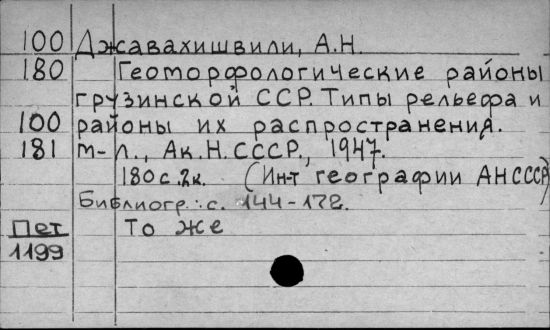 100 Джавахишвили, А.Н.
180 Геоморфологические районы
грузинской ССР. Типы рельефа и
100 районы их распространения.
181 М-Л., Ак.Н.СССР., 1947.
180 с. 2к. (Ин-т географии АНСССР)
Библиогр.: с. 144-172.
Пет То же
1199